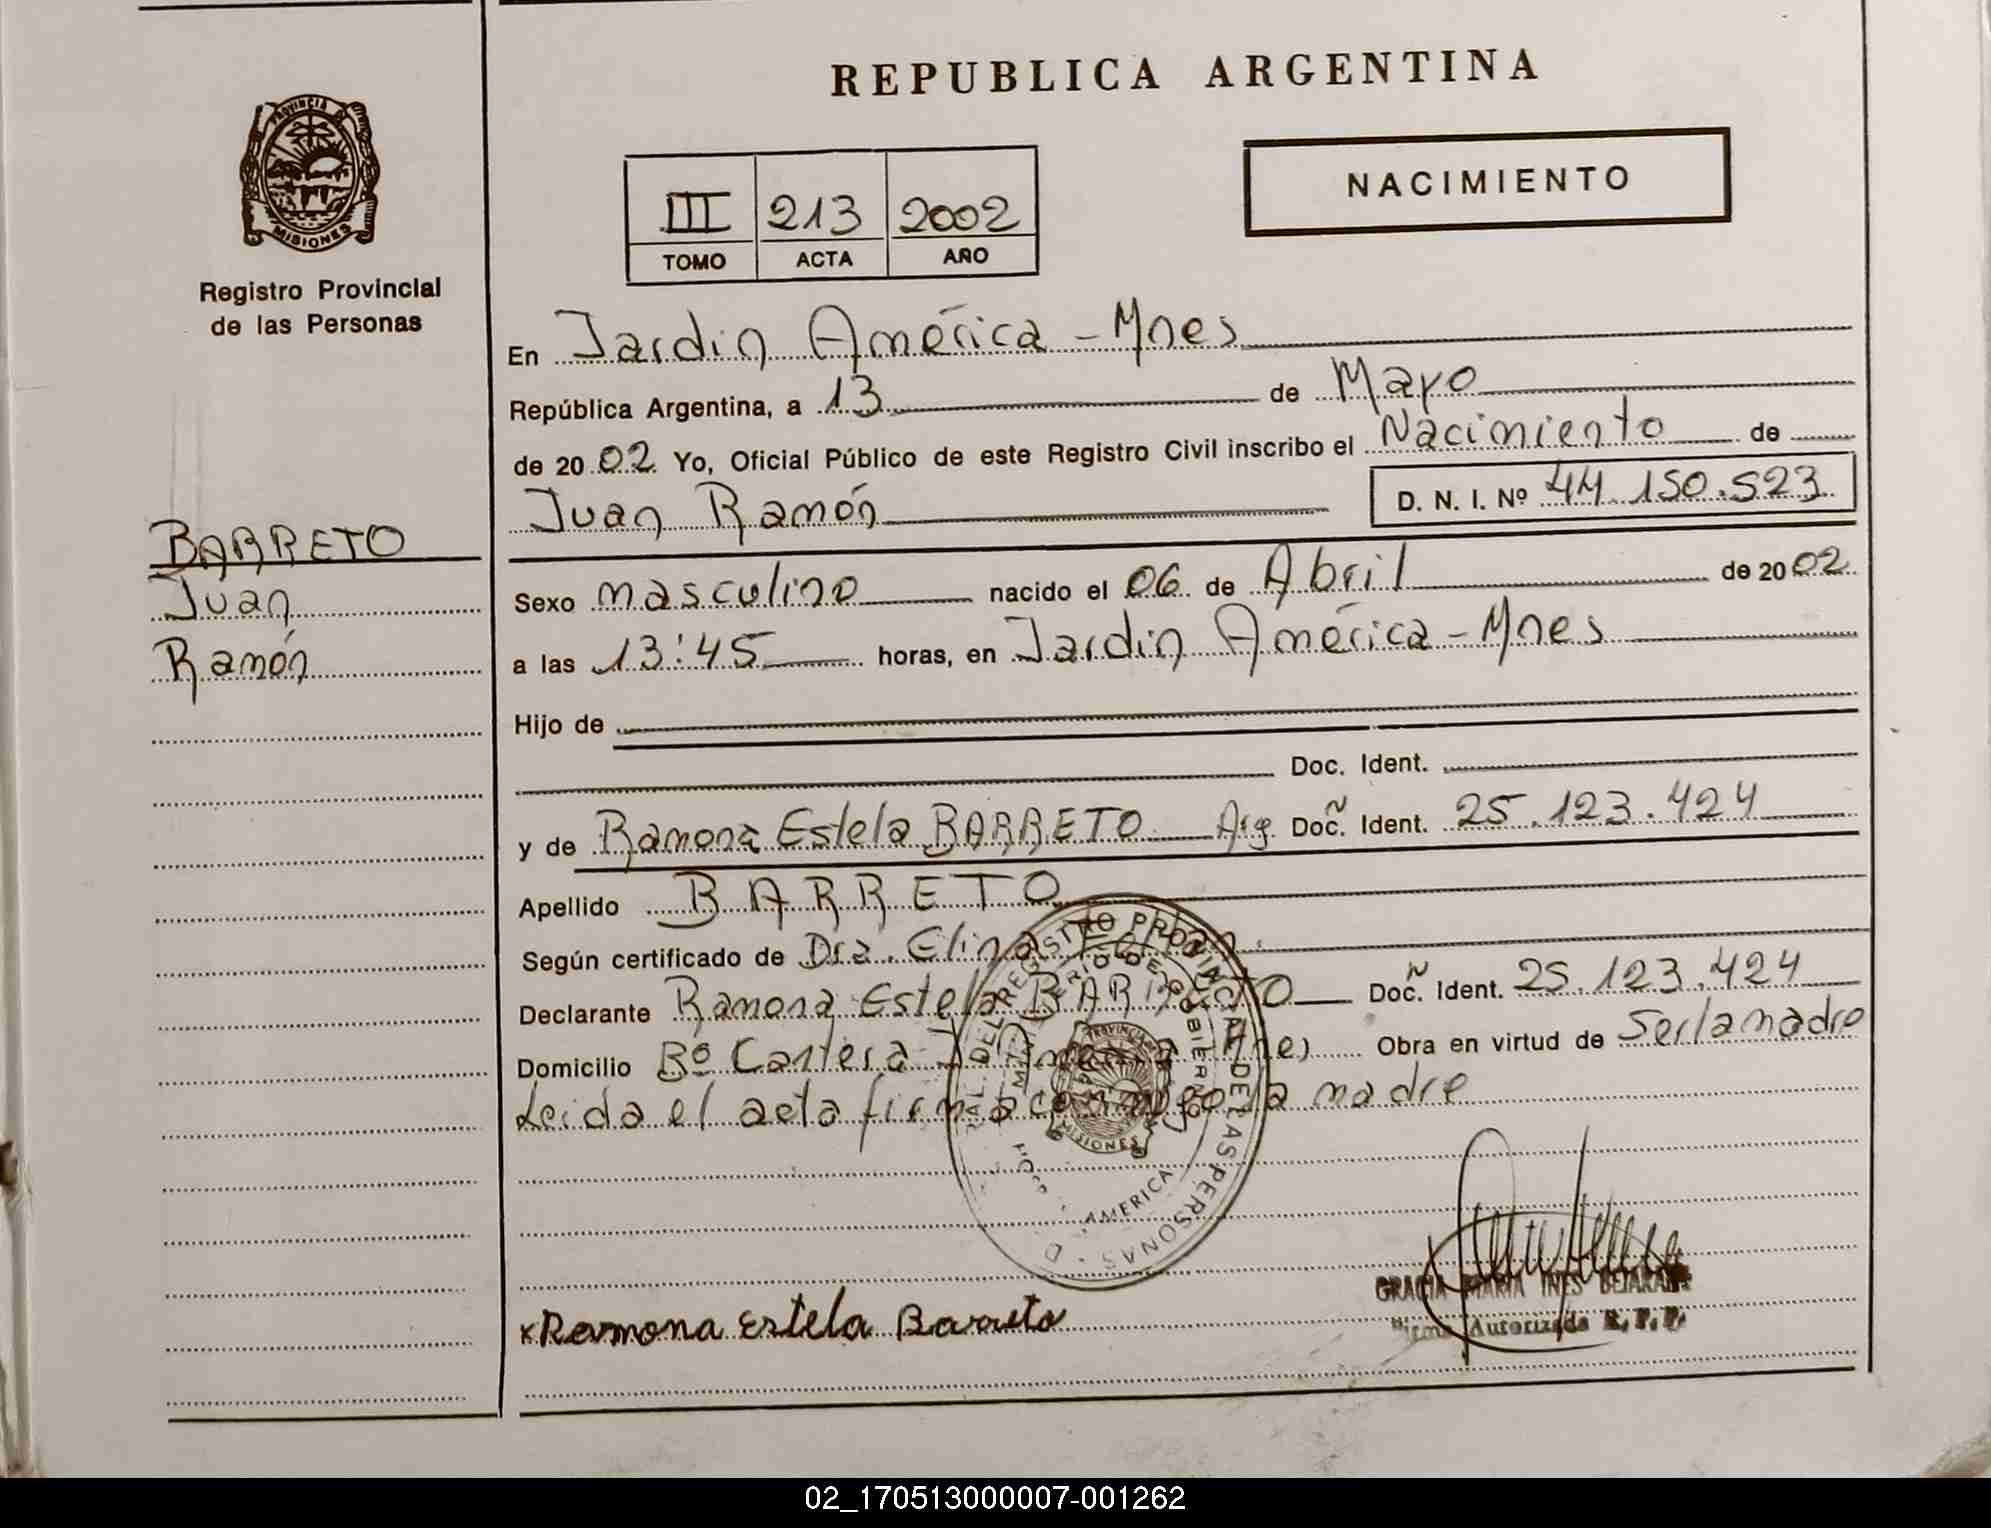 REPUBLICA ARGENTINA
PROVINCIA DE
MISIONES
Registro Provincial
de las Personas
III 213 2002
TOMO ACTA AÑO
NACIMIENTO
BARRETO
Juan
Ramón
En Jardin América - Mnes
República Argentina, a 13 de Mayo
de 20 02 Yo, Oficial Público de este Registro Civil inscribo el Nacimiento de
Juan Ramón D. N. I. Nº 44.150.523
Sexo masculino nacido el 06 de Abril de 20 02
a las 13:45 horas, en Jardin América - Mnes
Hijo de
Doc. Ident.
y de Ramona Estela BARRETO Arg. Doc. Ñ Ident. 25.123.424
Apellido BARRETO
Según certificado de Dra. Elina
Declarante Ramona Estela BARRETO Doc. Ñ Ident. 25.123.424
Domicilio Bº Cantera Obra en virtud de Ser la madre
Leida el acta firma conmigo la madre
REGISTRO PROVINCIAL DE LAS PERSONAS
AMERICA
PROVINCIA
MISIONES
x Ramona Estela Barreto
GRACIA MARIA INES BEJARANO
Firma Autorizada R. P. P.
02_170513000007-001262